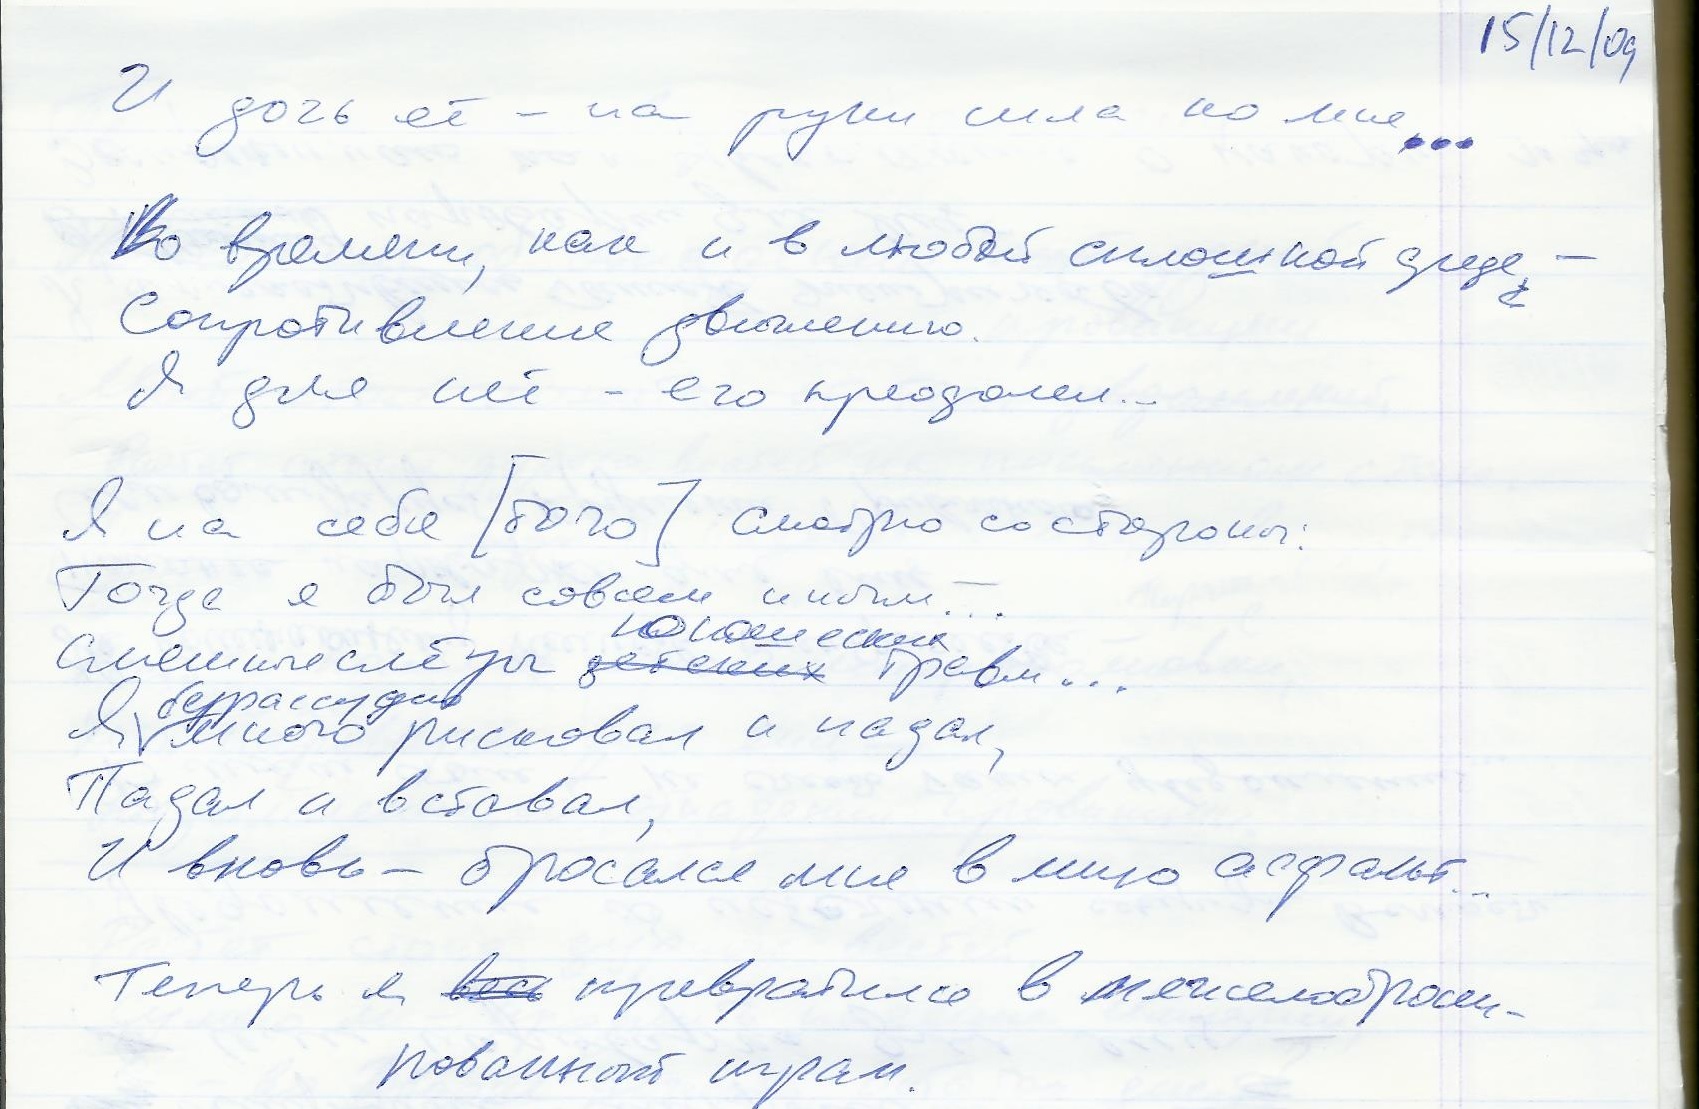 15/12/09
И дочь её – на руки шла ко мне...
Во времени, как и в любой сплошной среде, –
Сопротивление движению.
Я для неё – его преодолел...
Я на себя [того] смотрю со стороны:
Тогда я был совсем иным...
юношеских
Смешные следы детских травм...
безрассудно
Я много рисковал и падал,
Падал и вставал,
И вновь – бросался мне в лицо асфальт...
Теперь я весь превратился в тяжелоброни-
рованный шрам.